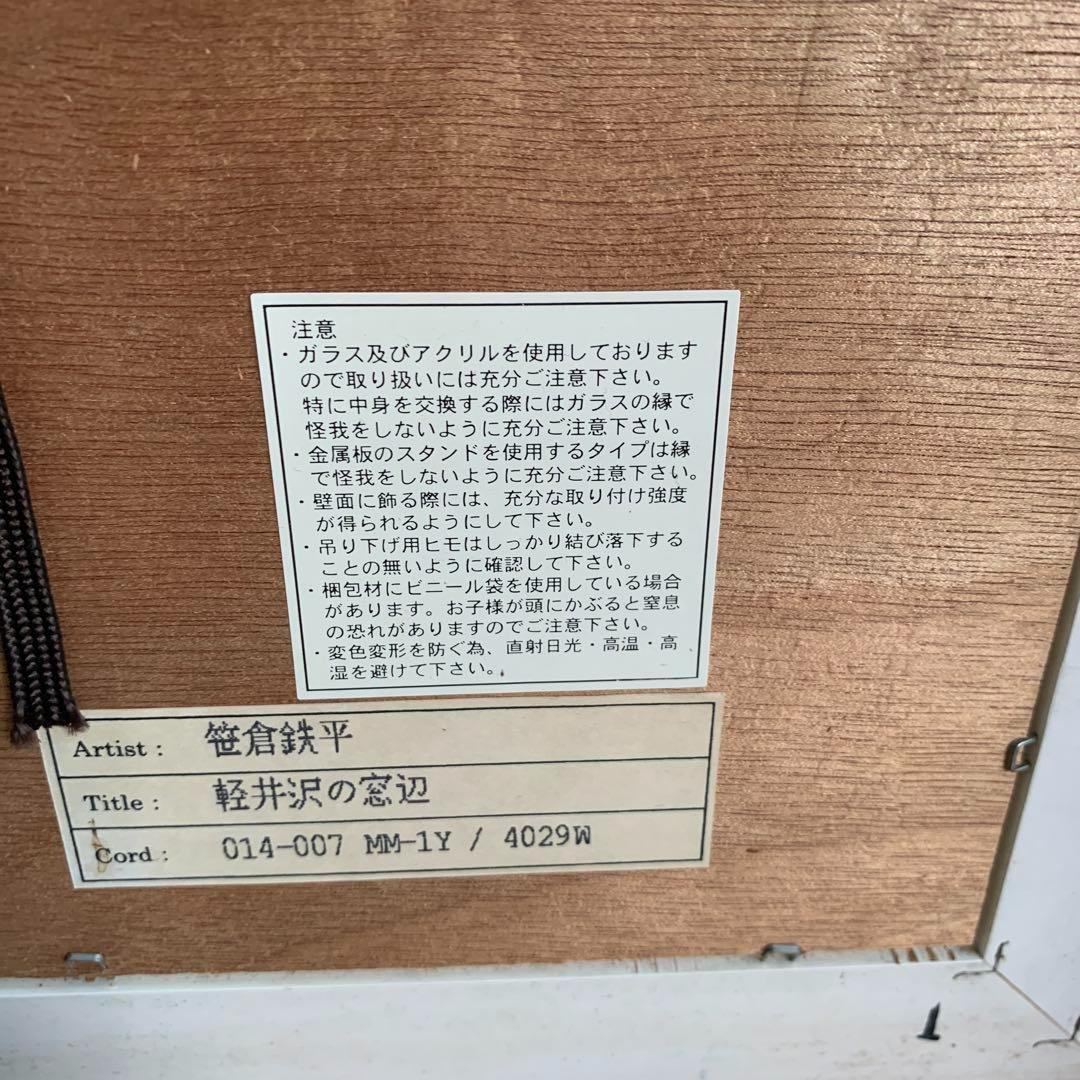 注意
・ガラス及びアクリルを使用しております
ので取り扱いには充分ご注意下さい。
特に中身を交換する際にはガラスの縁で
怪我をしないように充分ご注意下さい。
・金属板のスタンドを使用するタイプは縁
で怪我をしないように充分ご注意下さい。
・壁面に飾る際には、充分な取り付け強度
が得られるようにして下さい。
・吊り下げ用ヒモはしっかり結び落下する
ことの無いように確認して下さい。
・梱包材にビニール袋を使用している場合
があります。お子様が頭にかぶると窒息
の恐れがありますのでご注意下さい。
・変色変形を防ぐ為、直射日光・高温・高
湿を避けて下さい。
Artist : 笹倉鉄平
Title : 軽井沢の窓辺
Cord : 014-007 MM-1Y / 4029W